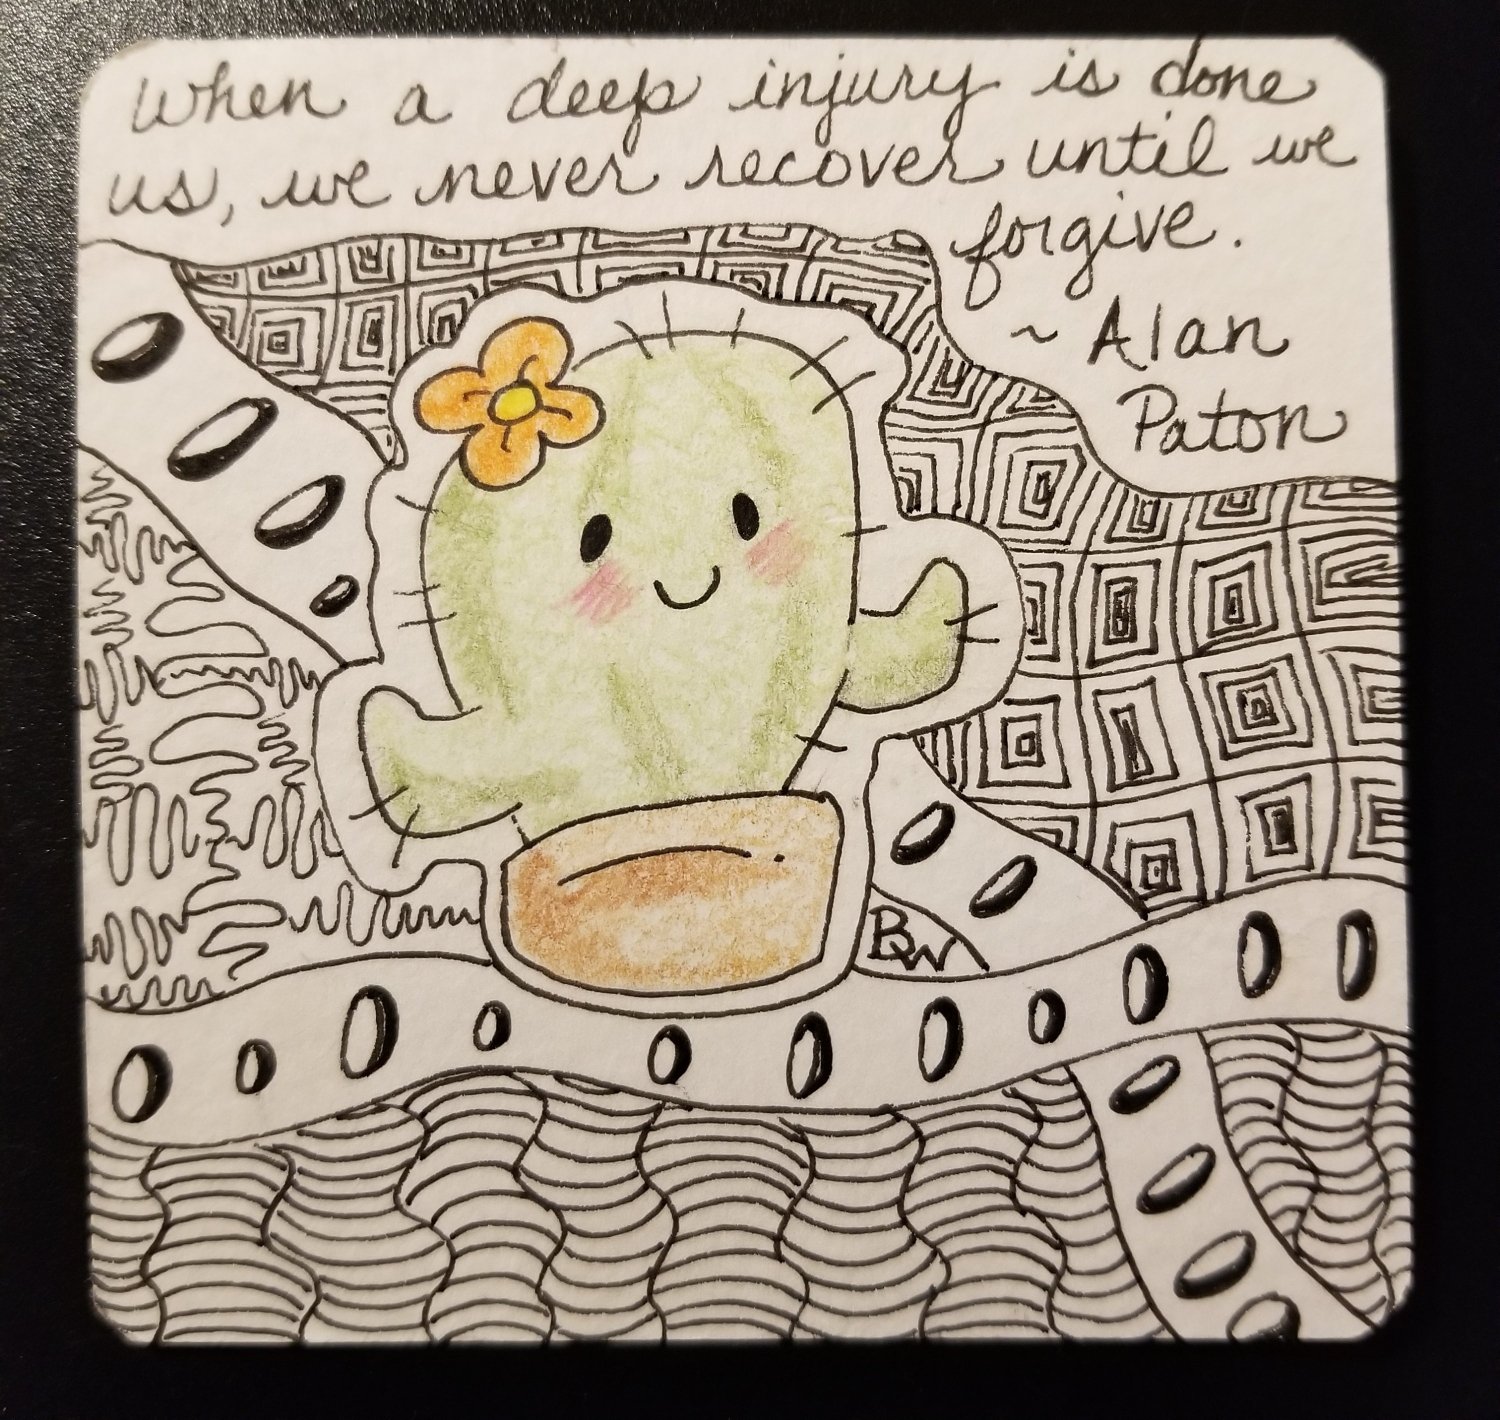 When a deep injury is done
us, we never recover until we
forgive.
~ Alan
Paton
BW